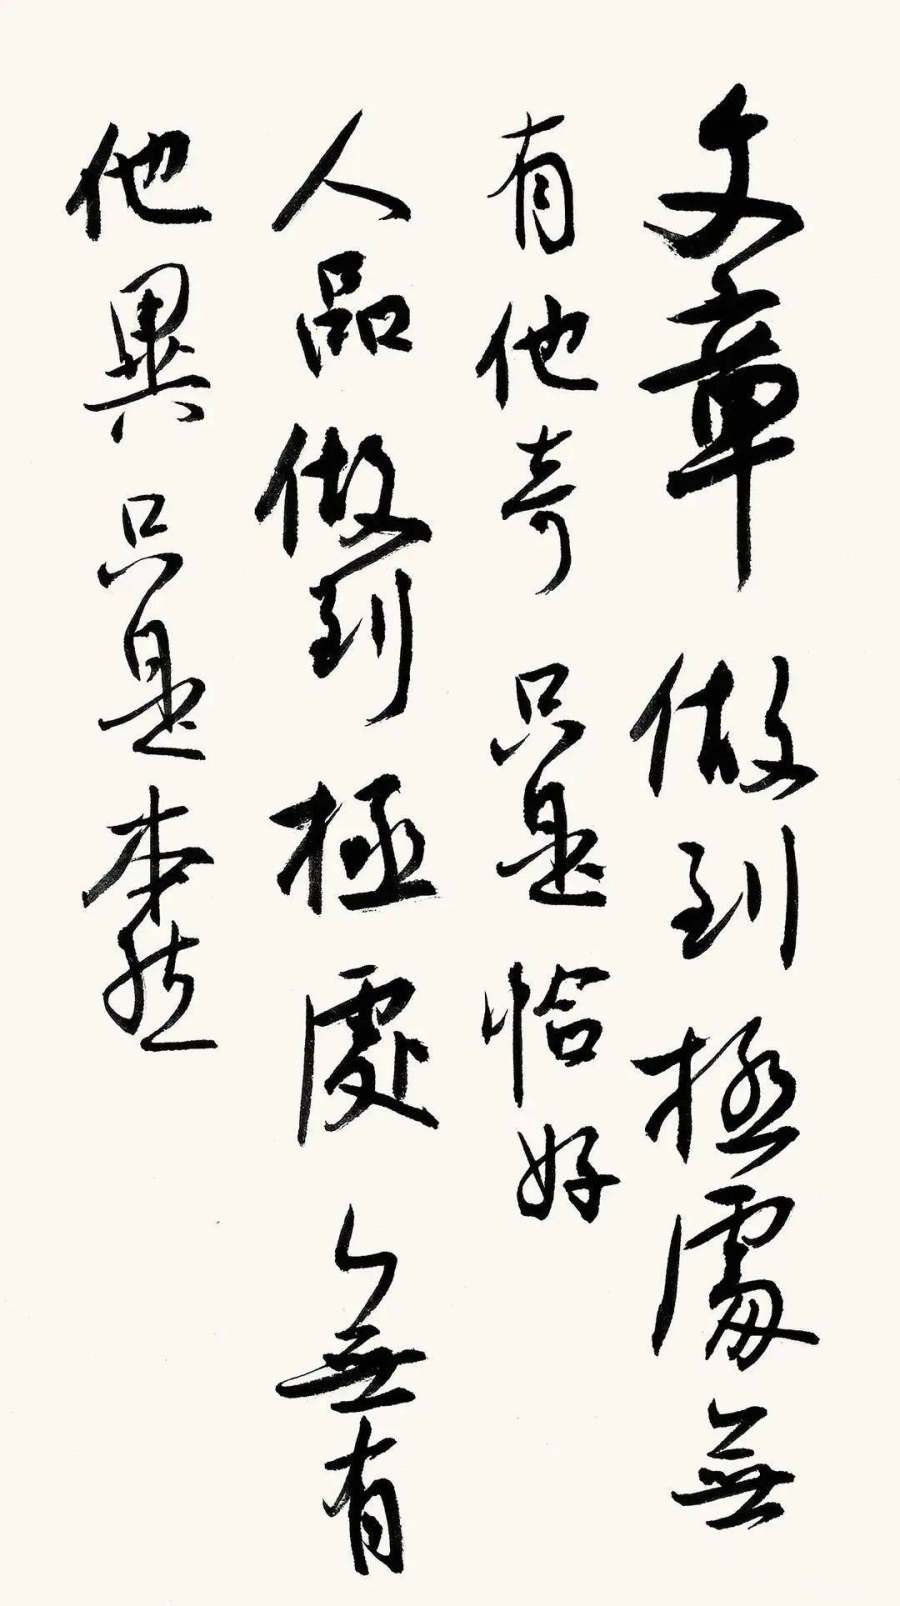 文章做到極處無
有他奇只是恰好
人品做到極處無有
他異只是本然